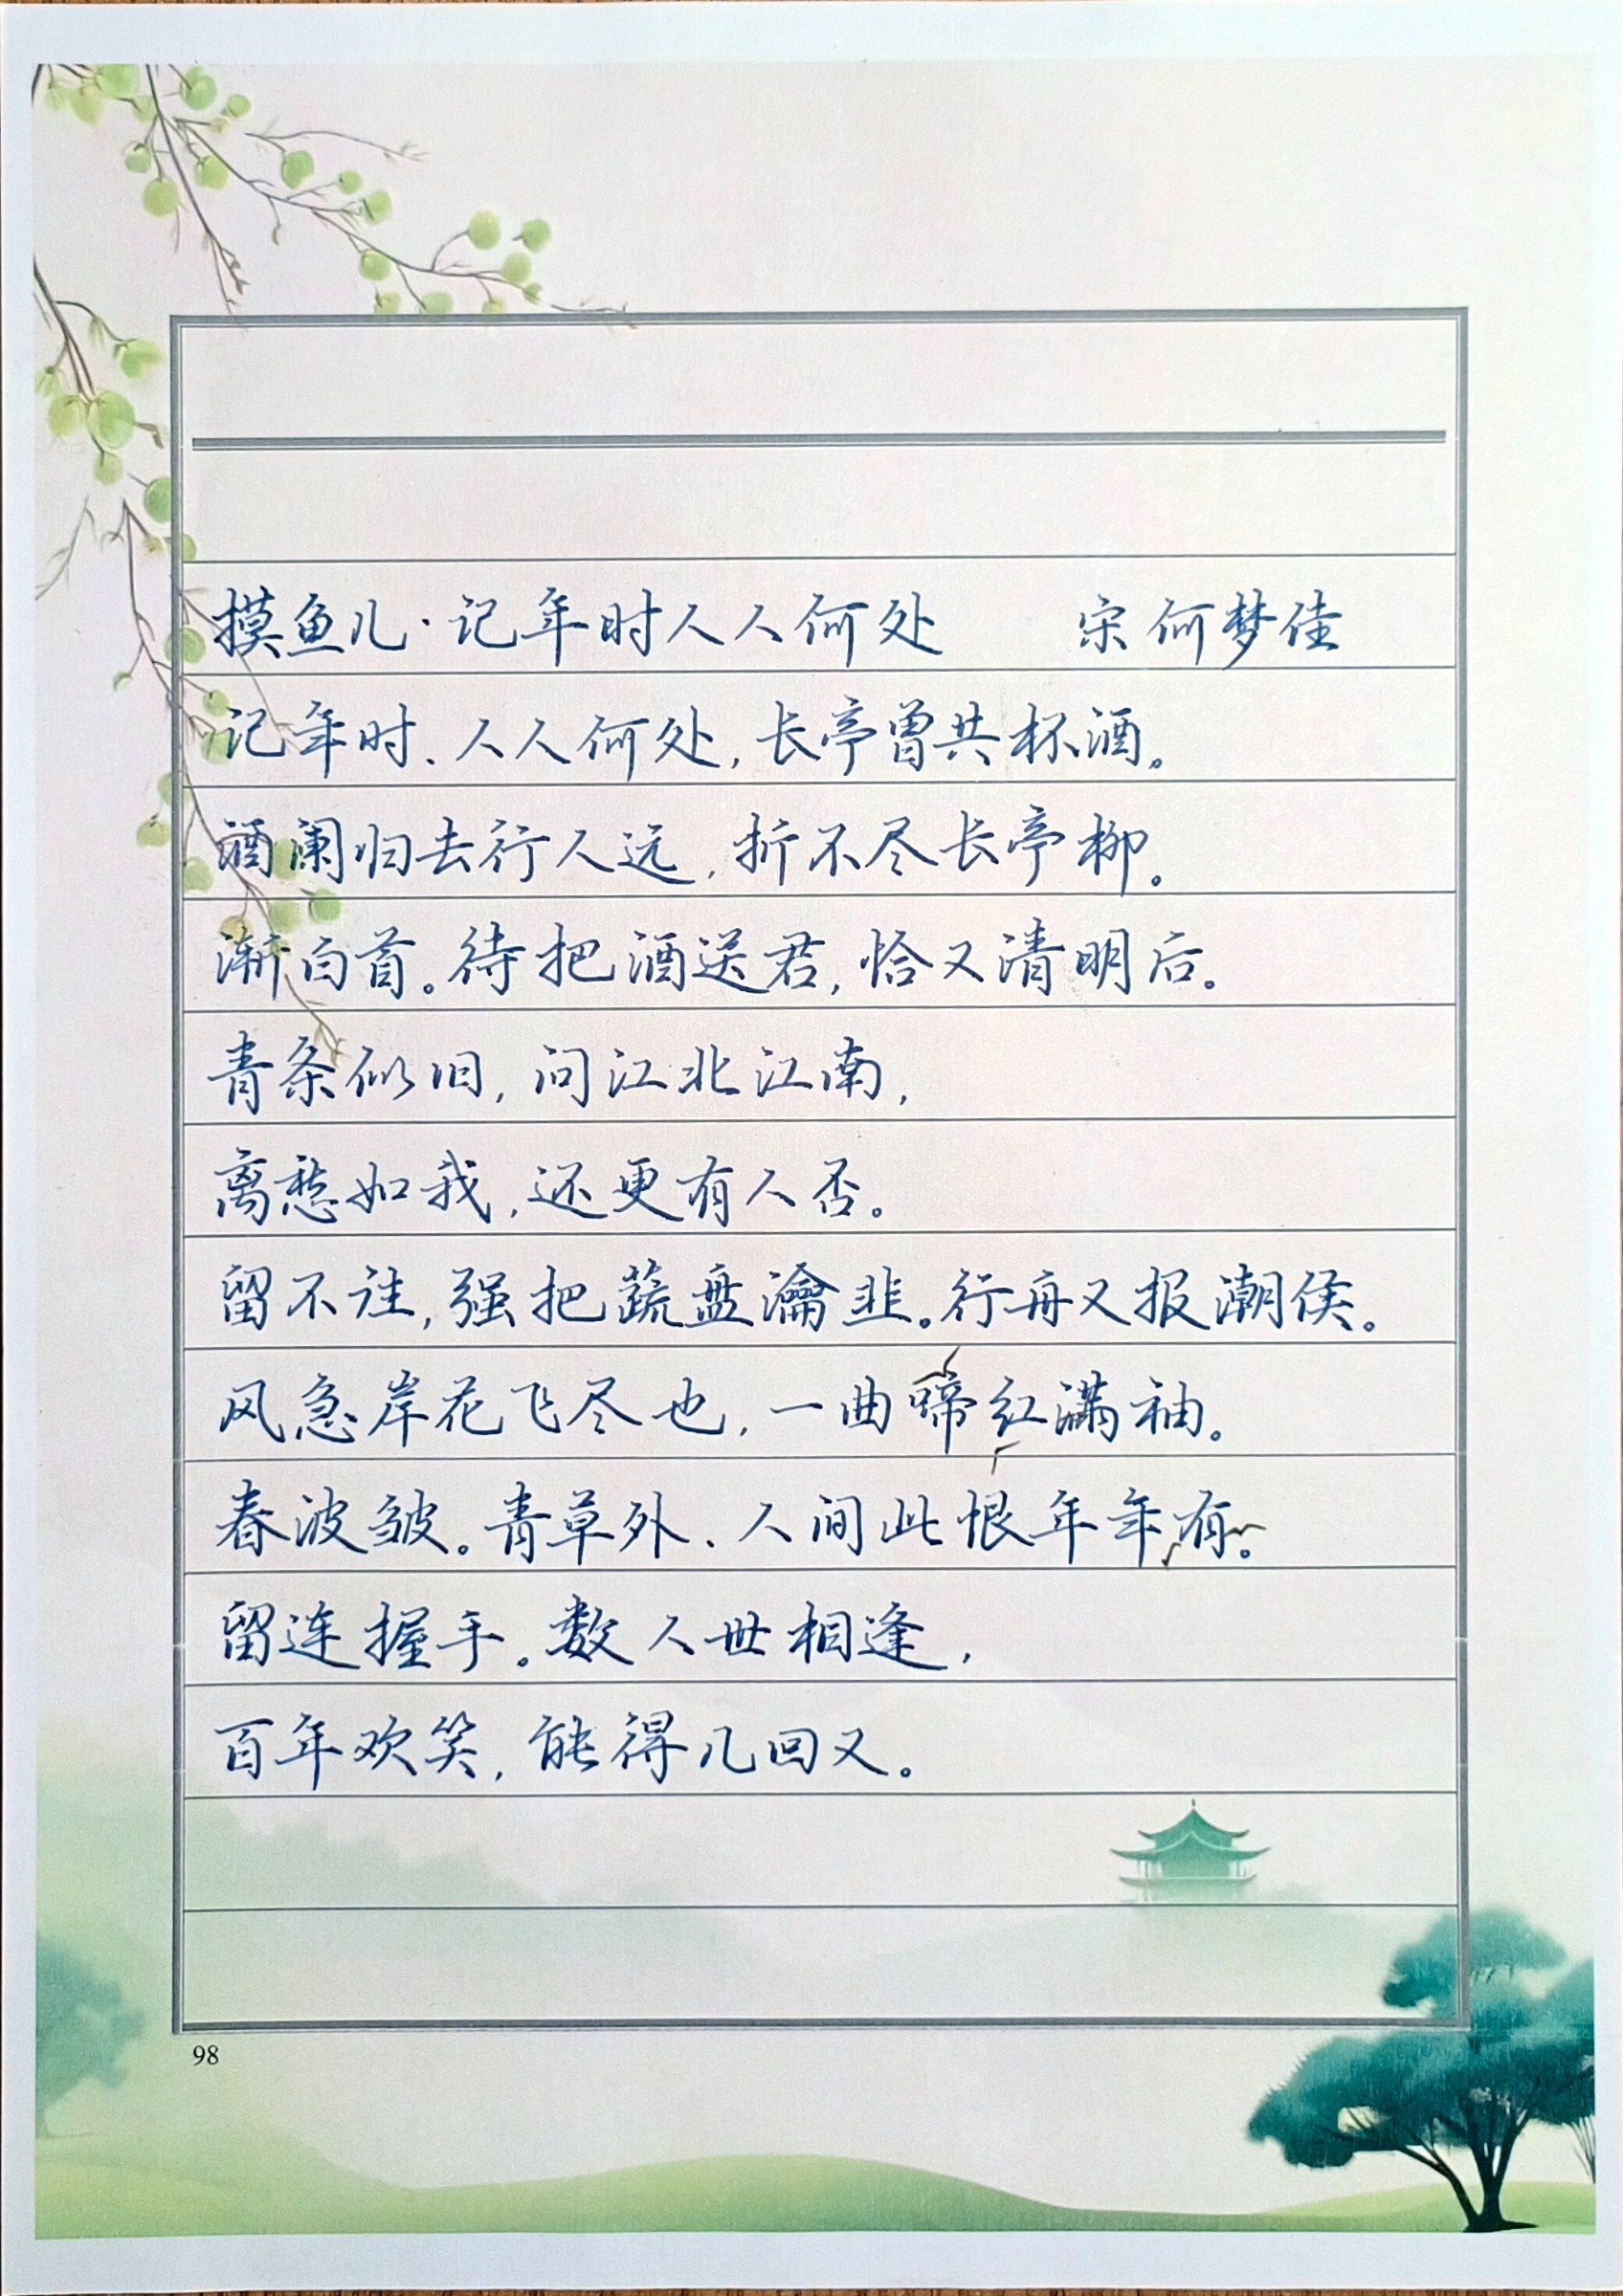 摸鱼儿·记年时人人何处 宋 何梦佳
记年时、人人何处，长亭曾共杯酒。
酒阑归去行人远，折不尽长亭柳。
渐白首。待把酒送君，恰又清明后。
青条似旧，问江北江南，
离愁如我，还更有人否。
留不住，强把蔬盘瀹韭。行舟又报潮侯。
风急岸花飞尽也，一曲啼红满袖。
春波皱。青草外、人间此恨年年有。
留连握手。数人世相逢，
百年欢笑，能得几回又。
98